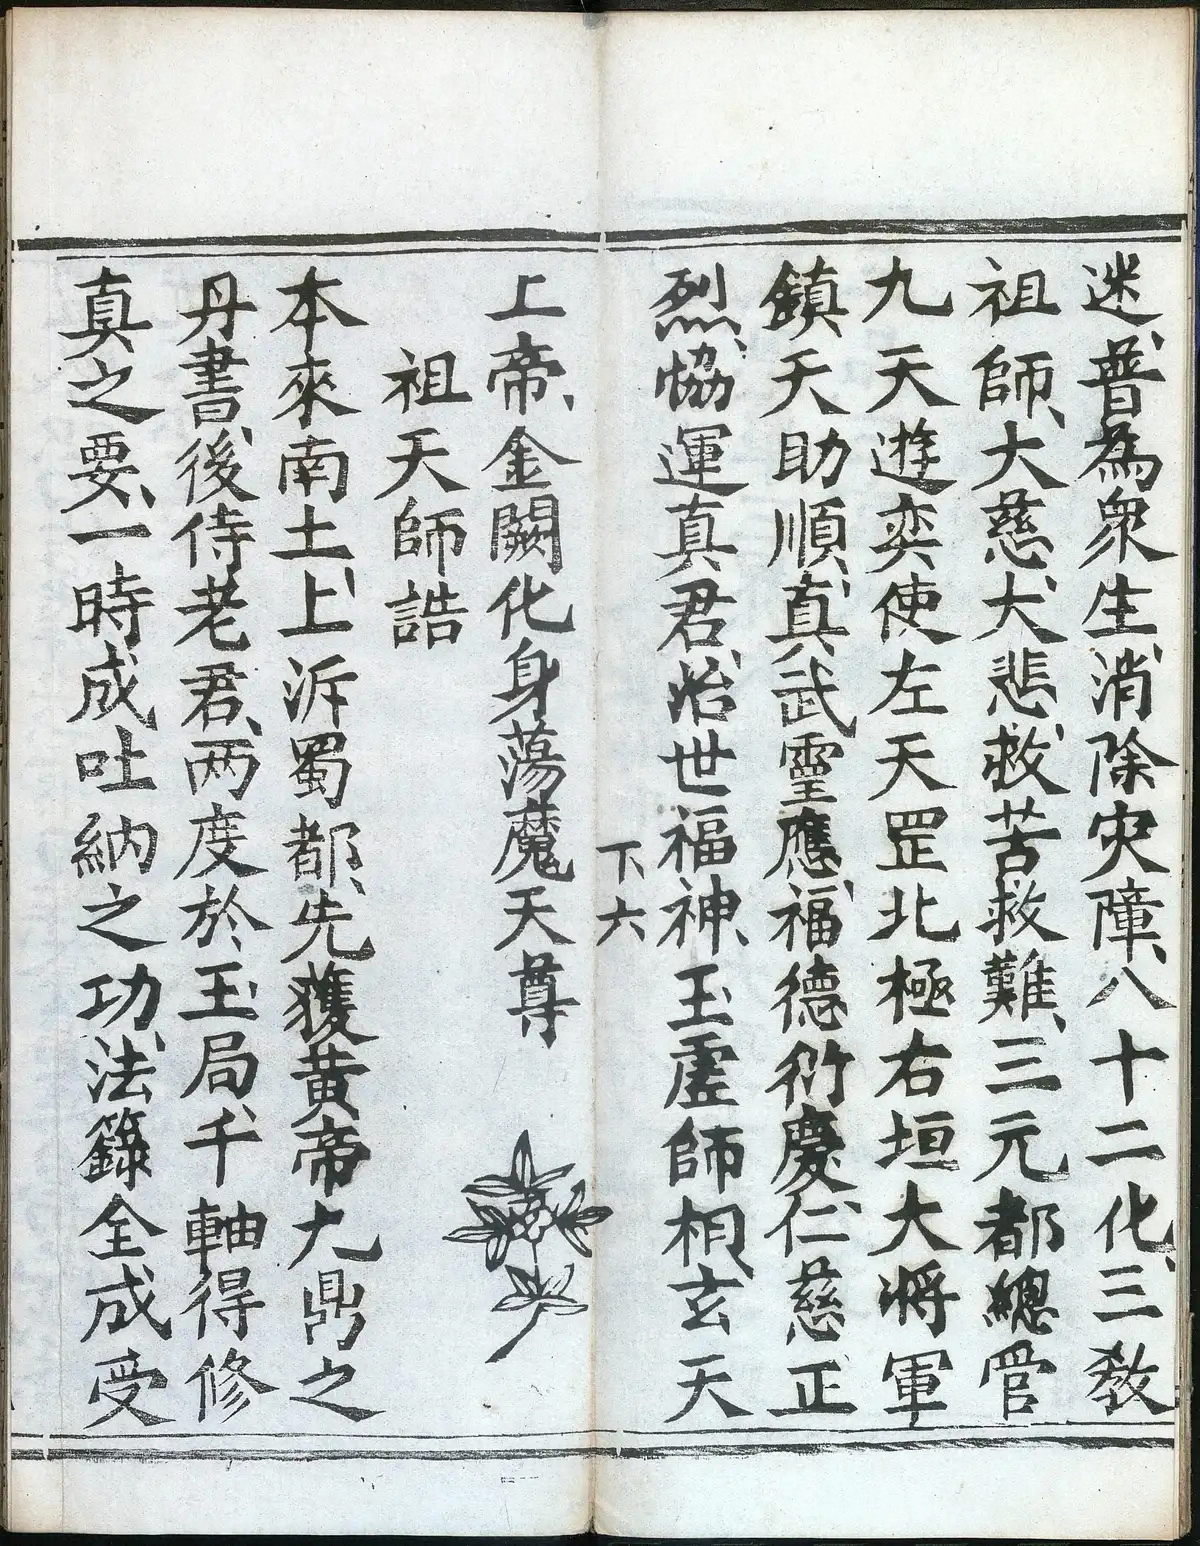 迷、普為衆生、消除灾障、八十二化、三教
祖師、大慈、大悲、救苦救難、三元都總管
九天遊奕使左天罡北極右垣大將軍
鎮天助順、真武靈應、福德衍慶、仁慈正
烈、協運真君、治世福神、玉虛師相、玄天
下六
上帝、金闕化身蕩魔天尊
祖天師誥
本來南土、上泝蜀都、先獲黃帝九鼎之
丹書、後侍老君、两度於玉局、千軸得修
真之要、一時成吐納之功、法籙全成受